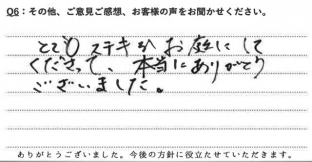 Q6：その他、ご意見ご感想、お客様の声をお聞かせください。
とてもステキなお庭にして
くださって、本当にありがとう
ございました。
ありがとうございました。今後の方針に役立たせていただきます。